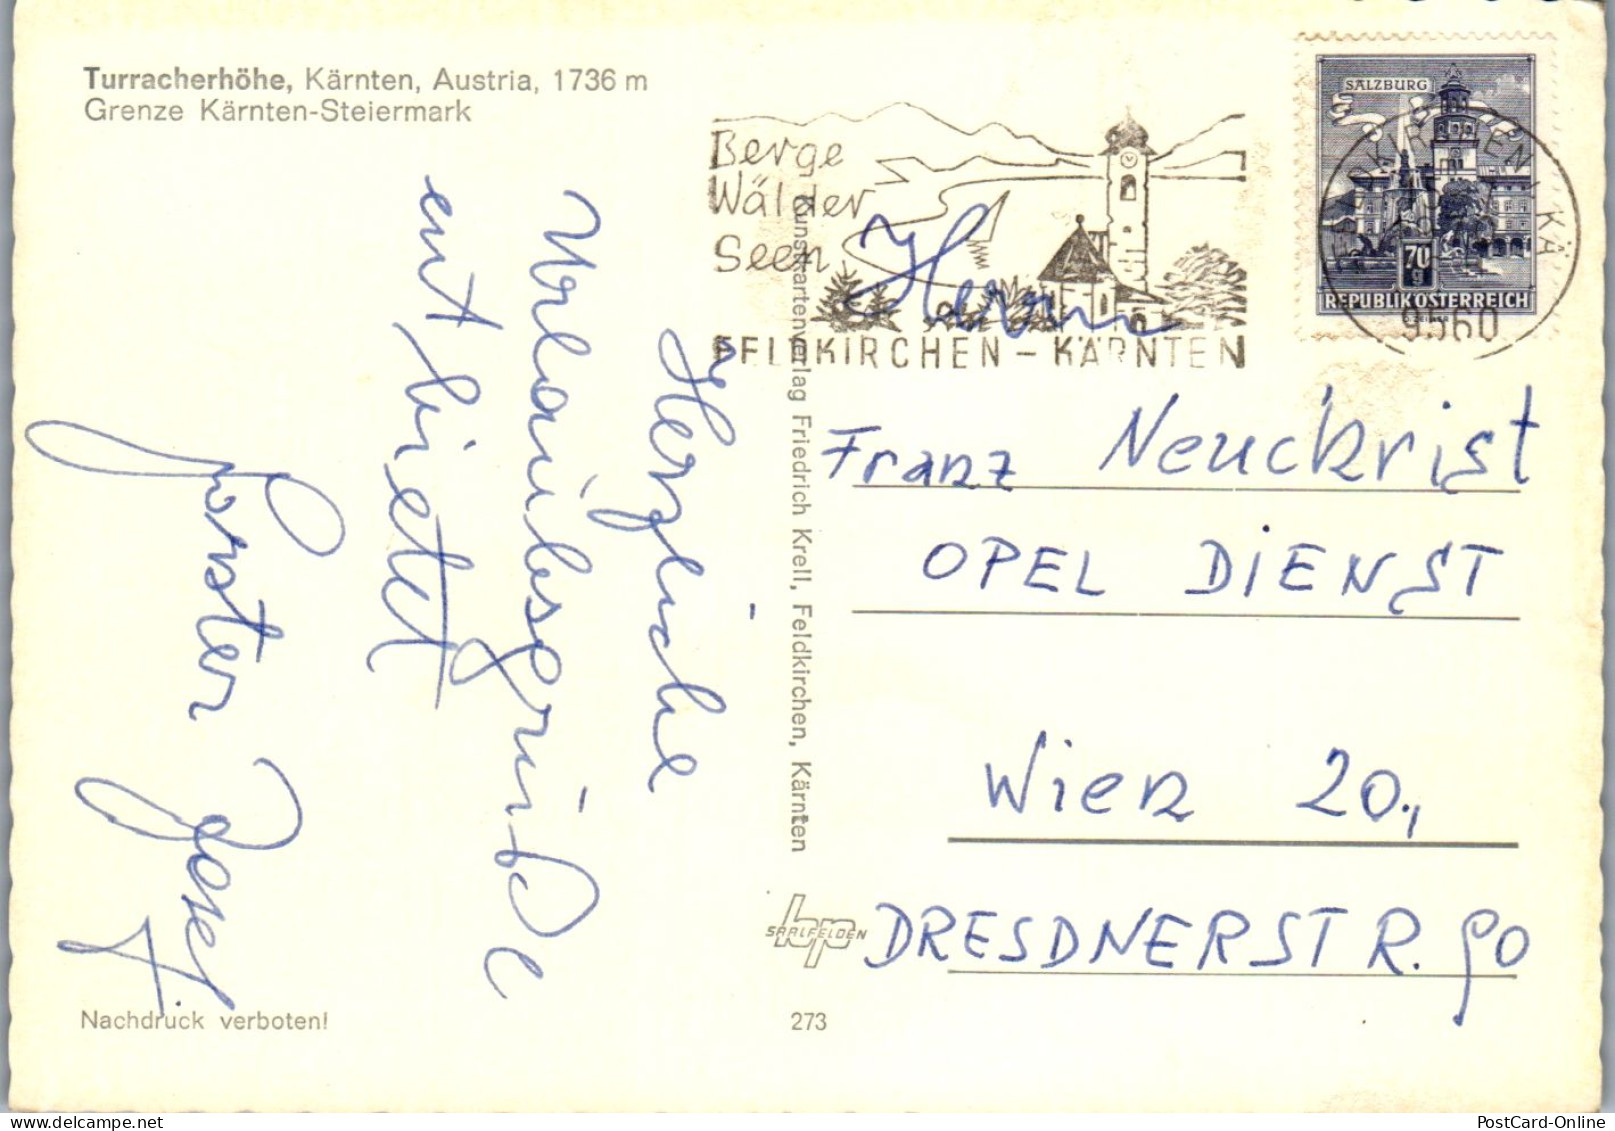 Turracherhöhe, Kärnten, Austria, 1736 m
Grenze Kärnten-Steiermark
Berge
Wälder
Seen
FELDKIRCHEN – KÄRNTEN
SALZBURG
70
g
REPUBLIK ÖSTERREICH
9560
Herzliche
Urlaubsgrüße
entbietet
Forster Josef
Kunstkartenverlag Friedrich Krell, Feldkirchen, Kärnten
Herrn
Franz Neuckrist
OPEL DIENST
Wien 20.,
DRESDNERSTR. 90
SAALFELDEN
Nachdruck verboten!
273
PostCard-Online